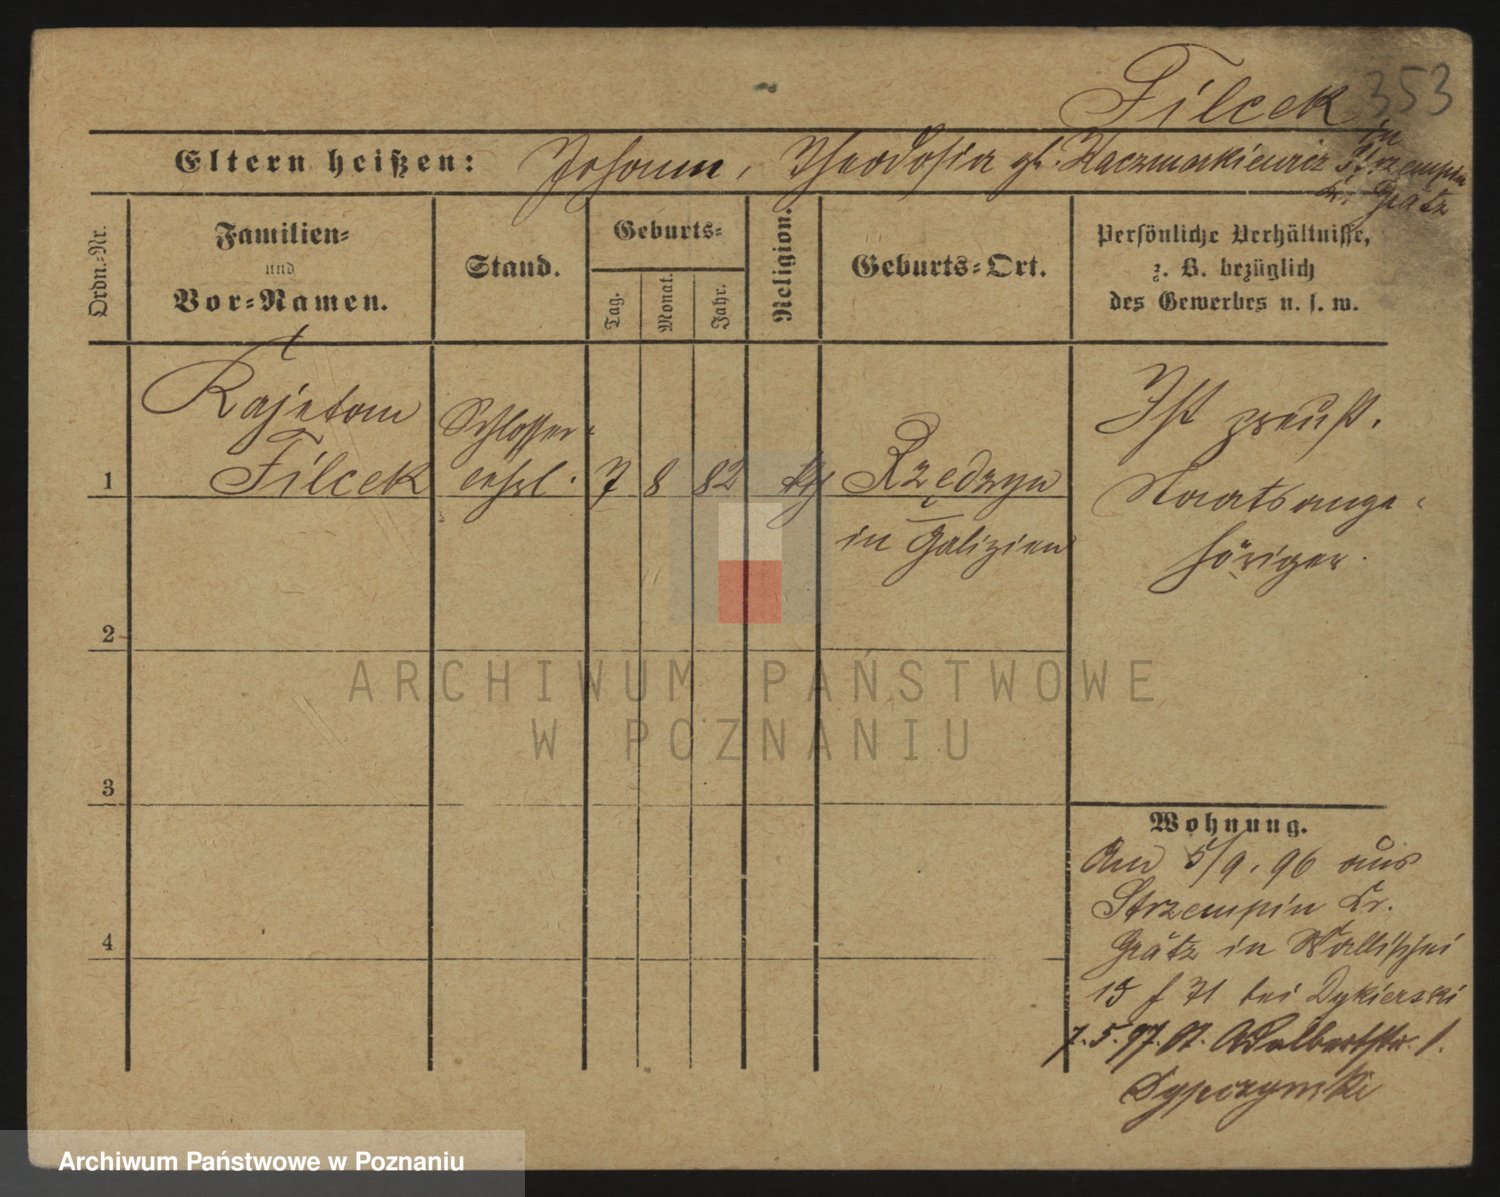 Filcek 353
Eltern heißen: Johann, Theodosia gb. Kaczmarkiewicz in
Strzempin
Kr. Grätz
Ordn.-Nr.
Familien-
und
Vor-Namen.
Stand.
Geburts-
Tag.
Monat.
Jahr.
Religion.
Geburts-Ort.
Persönliche Verhältnisse,
z. B. bezüglich
des Gewerbes u. s. w.
1
Kajetan
Filcek
Schlosser-
lehrl.
7 8 82 kth
Rzędzyn
in Galizien
Ist preuß.
Staatsange-
höriger.
2
3
4
Wohnung.
Am 5/9. 96 aus
Strzempin Kr.
Grätz in Wallischei
bei Dykierski
7.5.97. St. Adalbertstr. 1.
ARCHIWUM PAŃSTWOWE
W POZNANIU
Archiwum Państwowe w Poznaniu